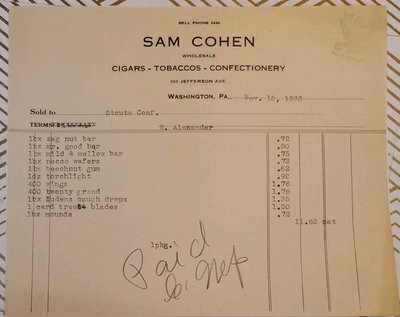 BELL PHONE 2440
SAM COHEN
WHOLESALE
CIGARS - TOBACCOS - CONFECTIONERY
103 JEFFERSON AVE.
WASHINGTON, PA., Nov. 15, 1933
Sold to Stouts Conf.
TERMS W. Alexander
1bx zag nut bar .72
1bx mr. good bar .50
1bx mild & mellow bar .75
1bx necco wafers .72
1bx beechnut gum .62
1dz torchlight .92
400 wings 1.76
400 twenty grand 1.76
1bx ludens cough drops 1.35
1 card tree4 blades 1.50
1bx mounds .72
11.62 net
1pkg.
Paid